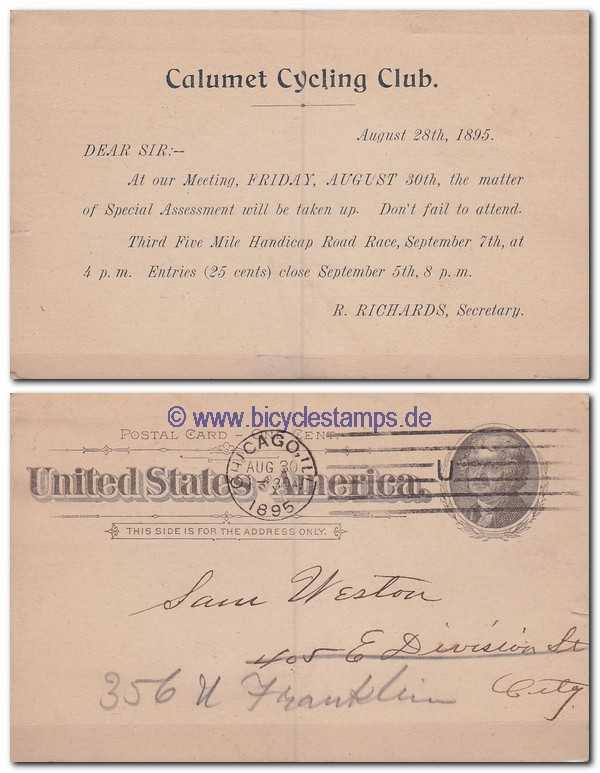 Calumet Cycling Club.
August 28th, 1895.
DEAR SIR:--
At our Meeting, FRIDAY, AUGUST 30th, the matter
of Special Assessment will be taken up. Don't fail to attend.
Third Five Mile Handicap Road Race, September 7th, at
4 p. m. Entries (25 cents) close September 5th, 8 p. m.
R. RICHARDS, Secretary.
© www.bicyclestamps.de
POSTAL CARD - ONE CENT.
United States of America.
CHICAGO, ILL.
AUG 30
1895
U
THIS SIDE IS FOR THE ADDRESS ONLY.
Sam Weston
405 E Division St
City
356 N Franklin